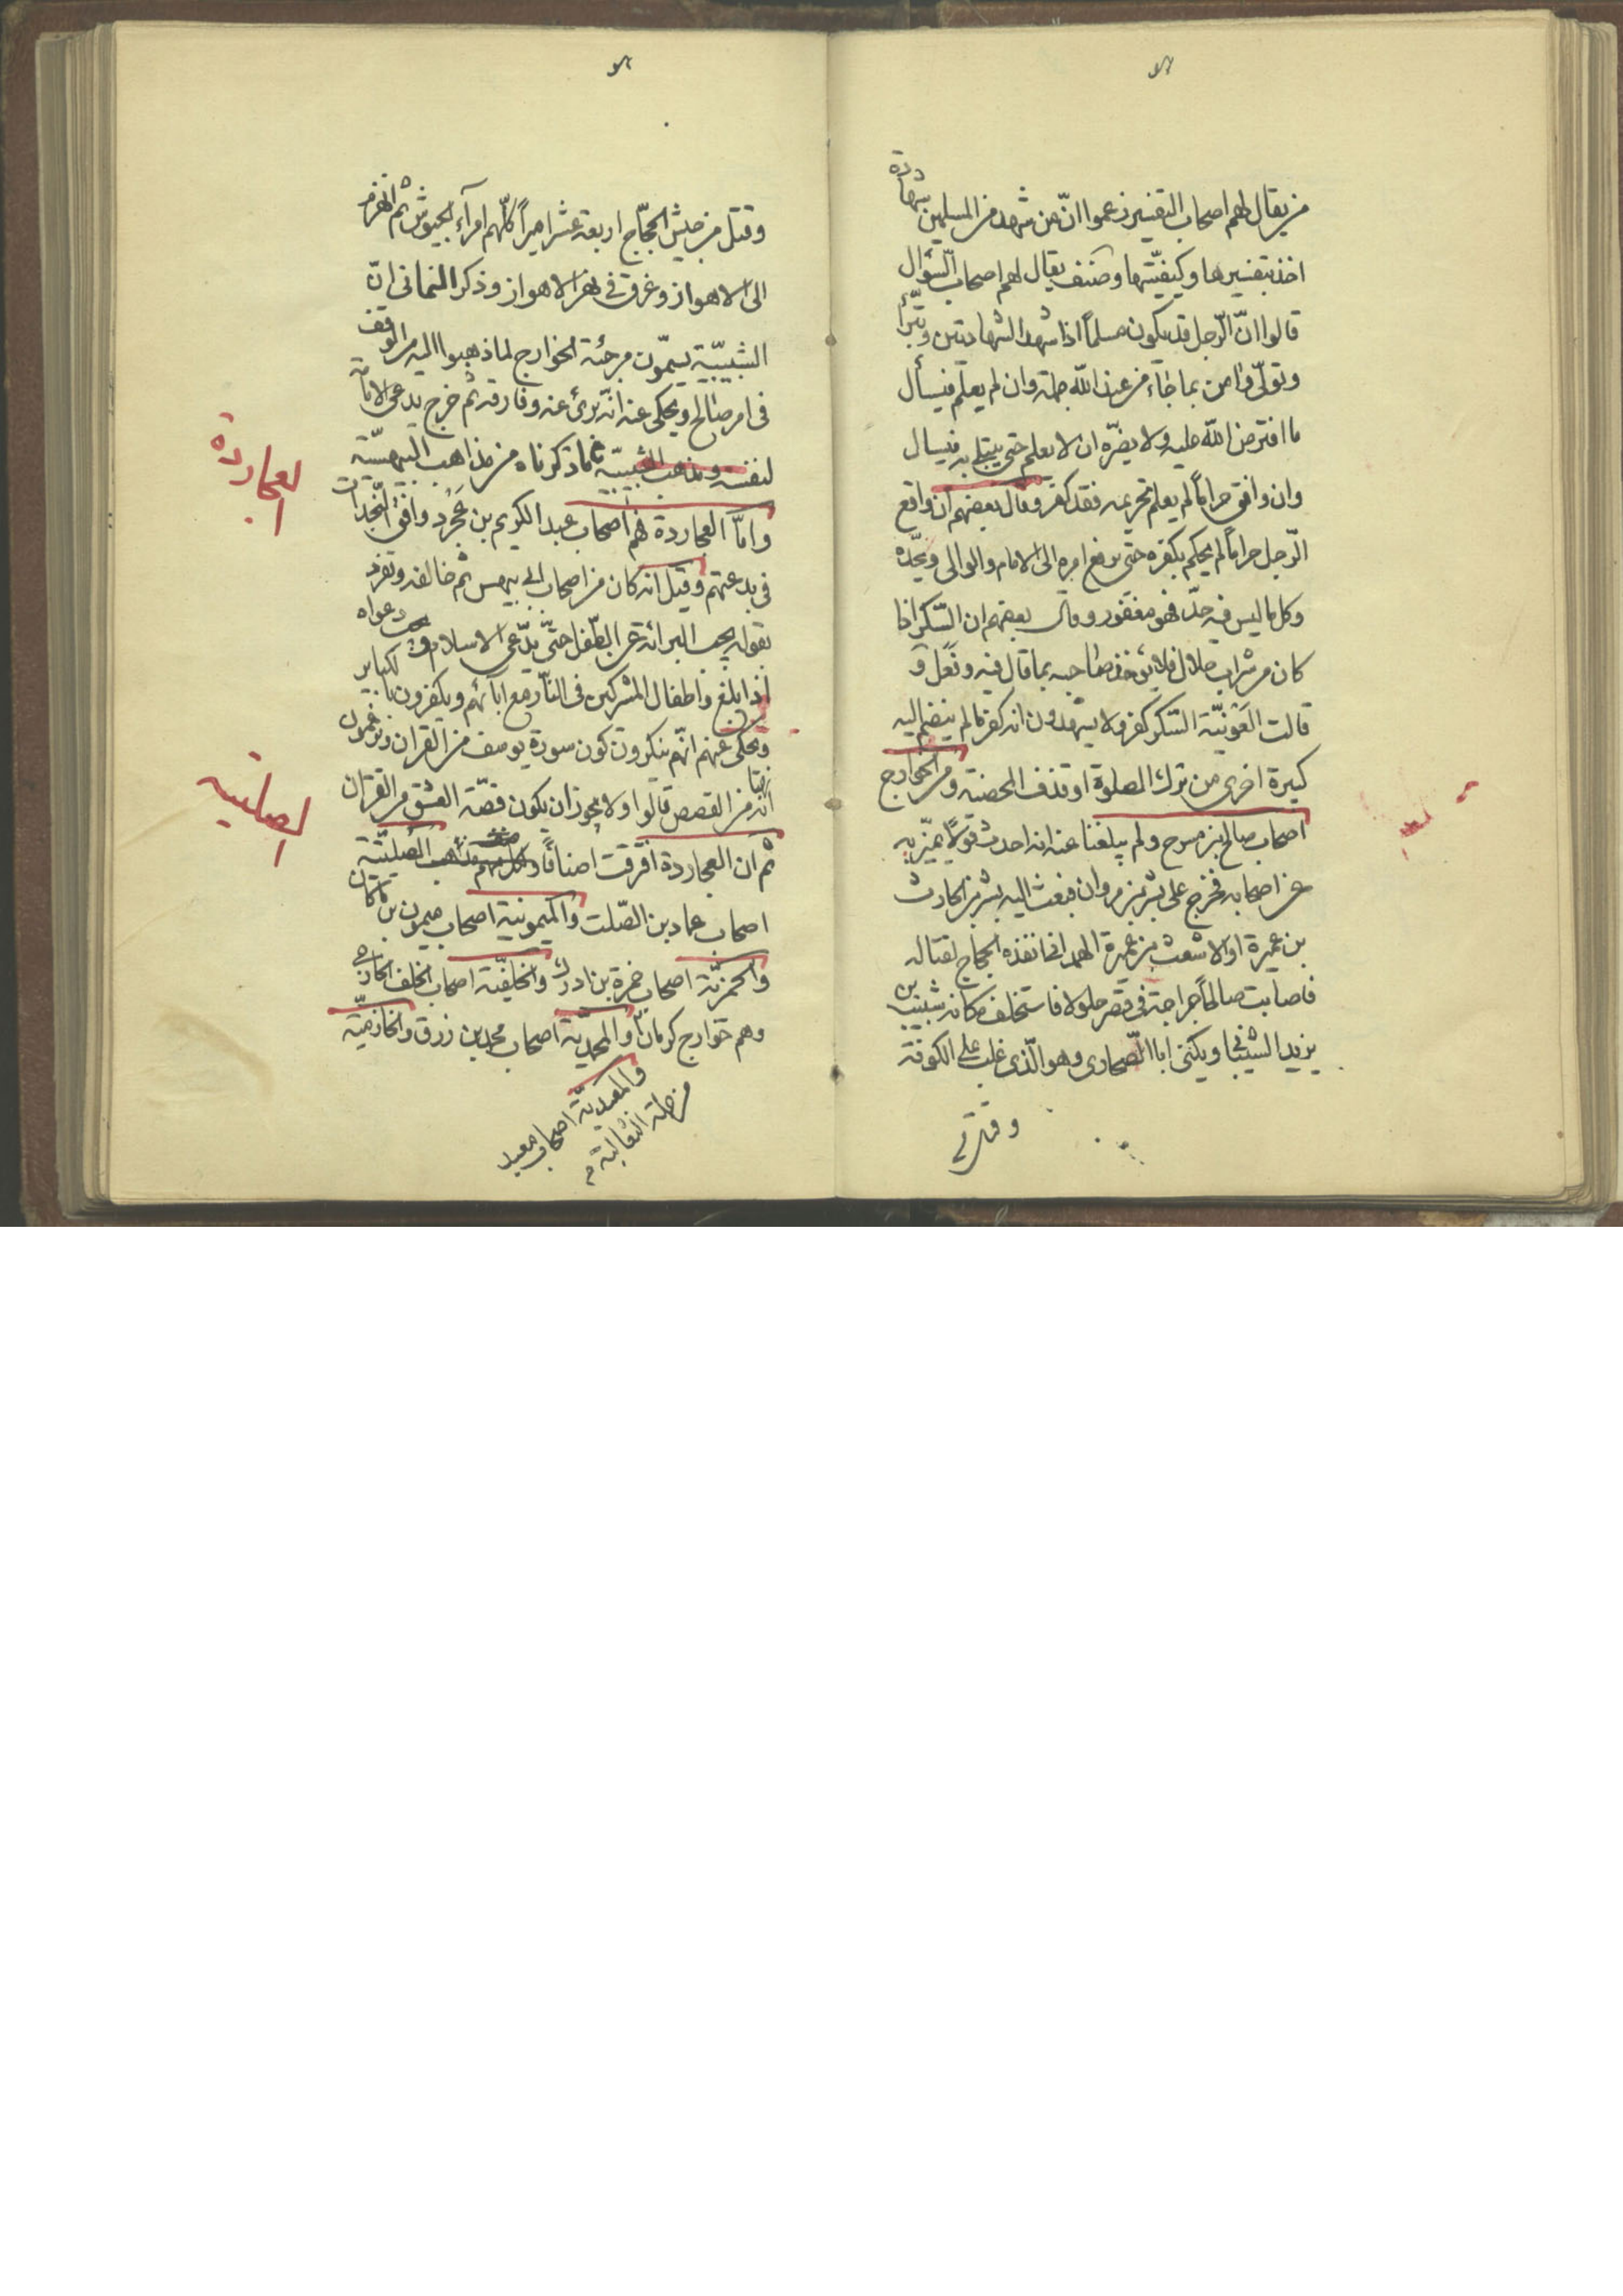 من يقال لهم اصحاب التفسير زعموا انّ من شهد من المسلمين بشهادة
اخذ بتفسيرها وكيفيّتها وصنف يقال لهم اصحاب السّؤال
قالوا انّ الرّجل قد يكون مسلماً اذا شهد الشهادتين وتبّرأ
وتولّى وامن بما جاء من عند الله جملة وان لم يعلم فيسأل
ما افترض الله عليه ولا يضرّه ان لا يعلم حتى يبتلى به فيسال
وان واقع حراماً لم يعلم تحريمه فقد كفر وقال بعضهم ان واقع
الرّجل حراماً لم يحكم بكفره حتى يرفع امره الى الامام والوالى ويحدّه
وكل ما ليس فيه حدّ فهو مغفور وقال بعضهم ان السّكر اذا
كان من شراب حلال فلا يؤخذ صاحبه بما قال فيه وفعل و
قالت العونيّة السّكر كفر ولا يشهدون انه كفر ما لم ينضم اليه
كبيرة اخرى من ترك الصلوة او قذف المحصنة ومن الخوارج
اصحاب صالح بن مسرح ولم يبلغنا عنه انه احدث قولاً تميّز به
عن اصحابه فخرج على بشر بن مروان فبعث اليه بشر بن الحارث
بن عميرة او الاشعث بن عميرة الهمدانى انفذه الحجاج لقتاله
فاصابت صالحاً جراحة فى قصر جلولا فاستخلف مكانه شبيب بن
يزيد الشيبانى ويكنى ابا الصّحارى وهو الّذى غلب على الكوفة
وقتل من جيش الحجّاج اربعة عشر اميراً كلّهم امرآء الجيوش ثم انهزم
الى الاهواز وغرق فى نهر الاهواز وذكر اليمانى انّ
الشبيبيّة يسمّون مرجئة الخوارج لما ذهبوا اليه من الوقف
فى امر صالح ويحكى عنه انّه برئ عنه وفارقه ثم خرج يدعى الامامة
لنفسه ومذهب الشبيبيّة ما ذكرناه من مذاهب البيهسيّة
العجاردة
وامّا العجاردة فهم اصحاب عبد الكريم بن عَجْرد وافق النّجدات
فى بدعتهم وقيل انه كان من اصحاب ابى بيهس ثم خالفه وتفرد
بقوله يجب البرائة عن الطّفل حتّى يدّعى الاسلام ويجب دعواه
اذا بلغ واطفال المشركين فى النّار مع ابآئهم ويكفرون بالكباير
ويحكى عنهم انّهم ينكرون كون سورة يوسف من القران ويزعمون
انها من القصص قالوا ولا يجوز ان يكون قصّة العشق من القران
الصلتيه
ثم ان العجاردة افترقت اصنافاً ولكل صنف مذهب الصلتيّة
اصحاب عماد بن الصّلت والميمونية اصحاب ميمون بن
والحمزيّة اصحاب حمزة بن ادرك والخلفيّة اصحاب الخلف الخارجى
وهم خوارج كرمان والمحمديّة اصحاب محمد بن زرق والخازميّة
والمعبديّة اصحاب معبد
من جملة الثعالبة